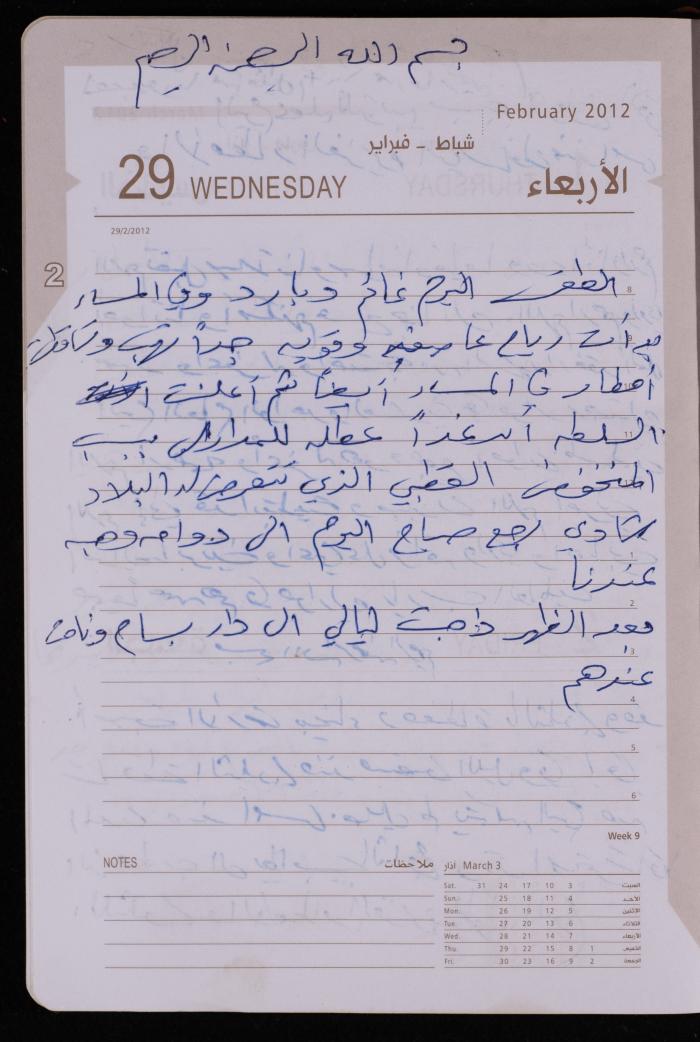 بسم الله الرحمن الرحيم
February 2012
شباط - فبراير
29 WEDNESDAY الأربعاء
29/2/2012
2
الطقس اليوم غائم وبارد وفي المساء
8
بدأت رياح عاصفة وقوية جداً تهب وتساقطت
9
أمطار في المساء أيضاً ثم أعلنت
10
السلطه أن غداً عطله للمدارس بسبب
11
المنخفض القطبي الذي تتعرض له البلاد
شادي رجع صباح اليوم الى دوامه وهبه
1
عندنا
2
بعد الظهر ذهبت ليالي الى دار بسام ونامت
3
عندهم
4
5
6
Week 9
NOTES ملاحظات
March 3 آذار
Sat. 31 24 17 10 3 السبت
Sun. 25 18 11 4 الأحد
Mon. 26 19 12 5 الاثنين
Tue. 27 20 13 6 الثلاثاء
Wed. 28 21 14 7 الأربعاء
Thu. 29 22 15 8 1 الخميس
Fri. 30 23 16 9 2 الجمعة